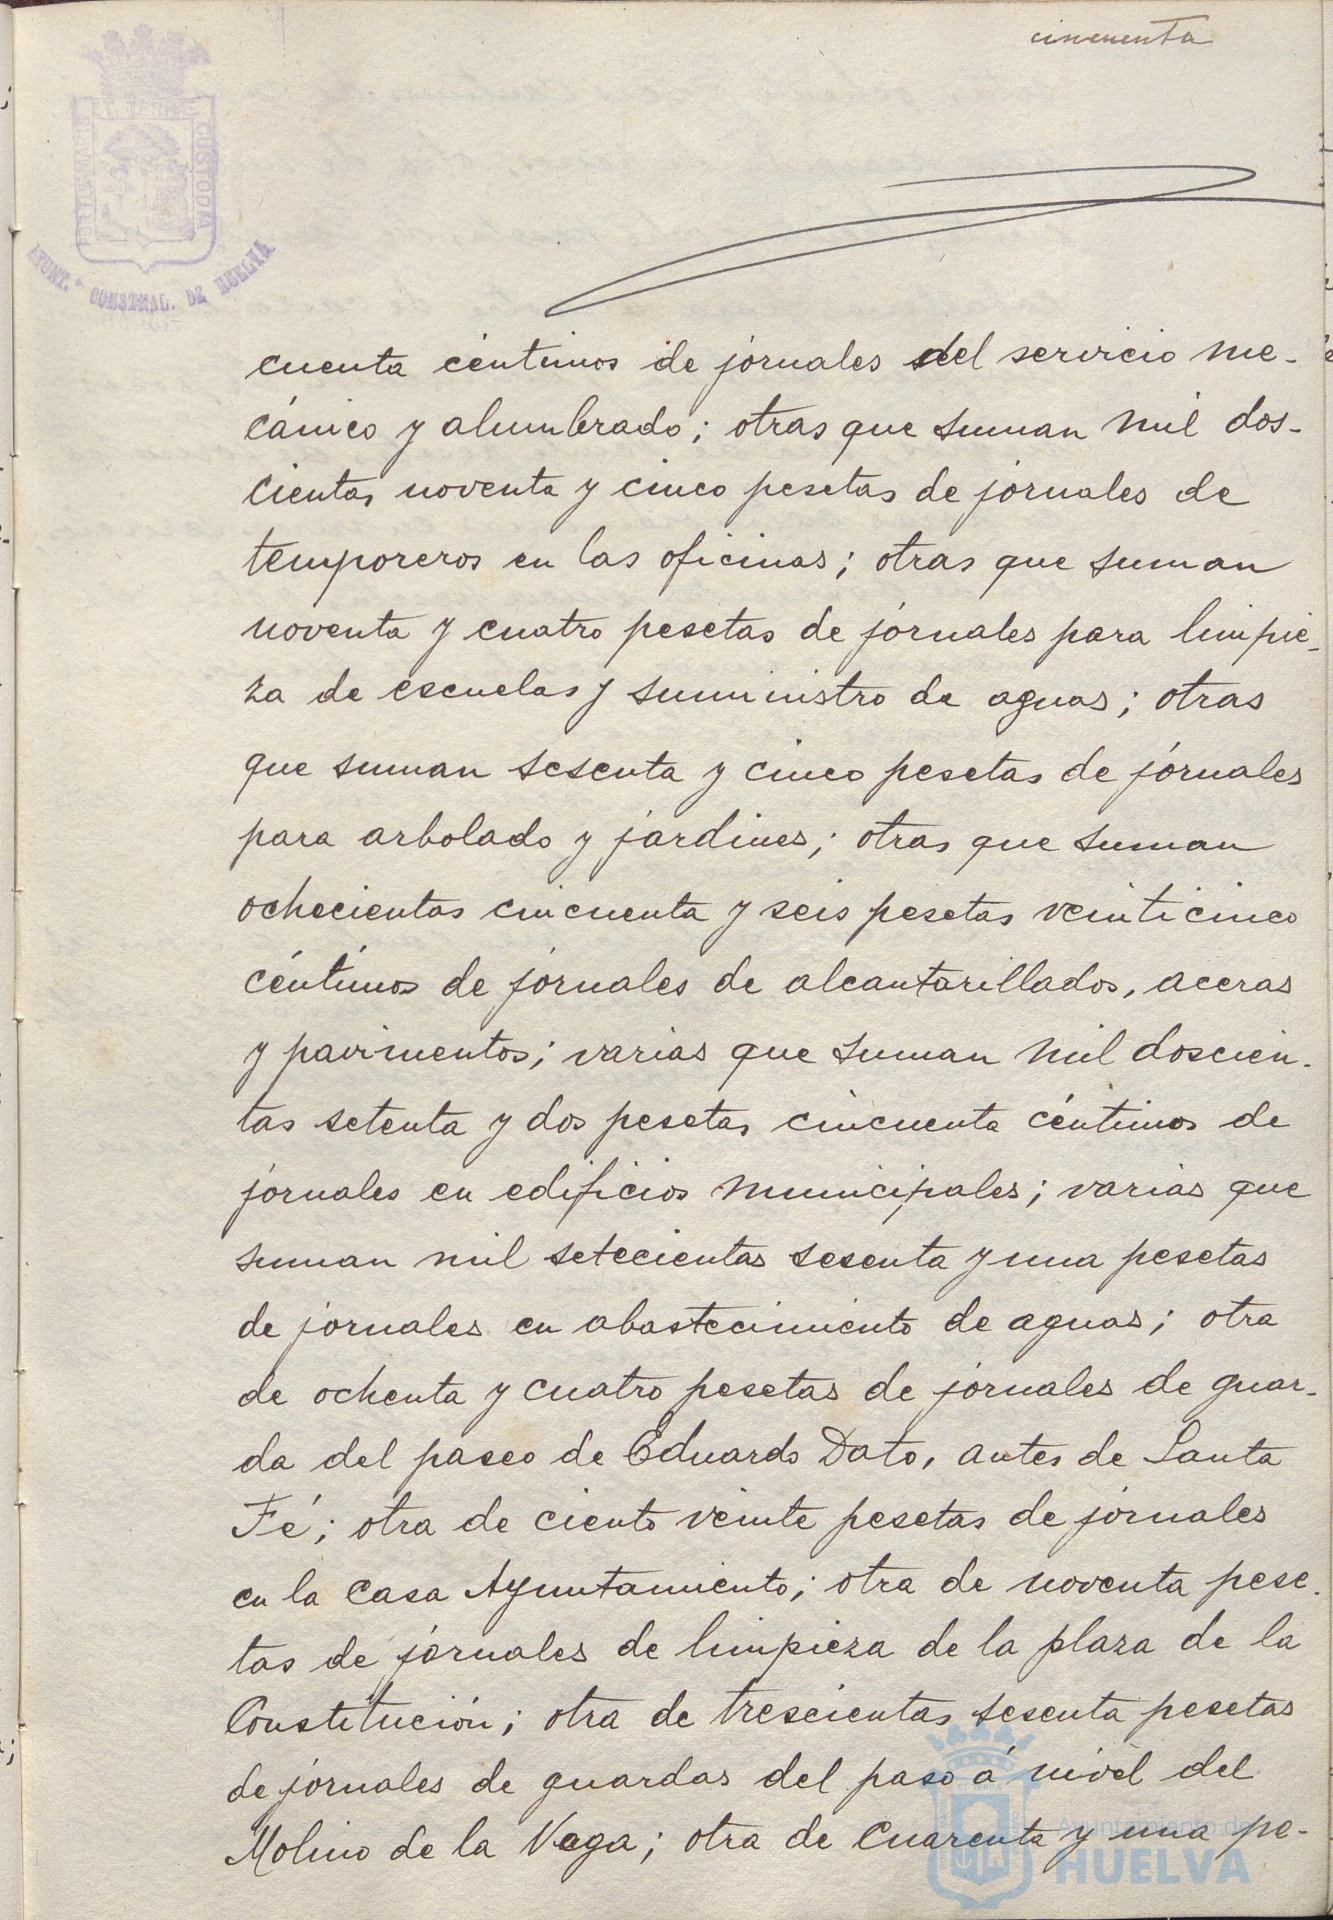 cincuenta
CUSTODIA
AYUNT. CONSTNAL. DE HUELVA
cuenta céntimos de jornales del servicio me-
cánico y alumbrado; otras que suman mil dos-
cientas noventa y cinco pesetas de jornales de
temporeros en las oficinas; otras que suman
noventa y cuatro pesetas de jornales para limpie-
za de escuelas y suministro de aguas; otras
que suman sesenta y cinco pesetas de jornales
para arbolado y jardines; otras que suman
ochecientas cincuenta y seis pesetas veinticinco
céntimos de jornales de alcantarillados, aceras
y pavimentos; varias que suman mil doscien-
tas setenta y dos pesetas cincuenta céntimos de
jornales en edificios municipales; varias que
suman mil setecientas sesenta y una pesetas
de jornales en abastecimiento de aguas; otra
de ochenta y cuatro pesetas de jornales de guar-
da del paseo de Eduardo Dato, antes de Santa
Fé; otra de ciento veinte pesetas de jornales
en la Casa Ayuntamiento; otra de noventa pese-
tas de jornales de limpieza de la plaza de la
Constitución; otra de trescientas sesenta pesetas
de jornales de guardas del paso á nivel del
Molino de la Vega; otra de cuarenta y una pe-
Ayuntamiento de
HUELVA